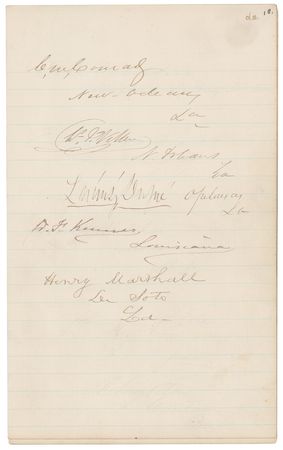 18.
C. M. Conrad
New-Orleans
La
Ch. J. Villere
N. Orleans
La
Lucius J. Dupré Opelousas
La
D. F. Kenner,
Louisiana
Henry Marshall
De Soto
La-